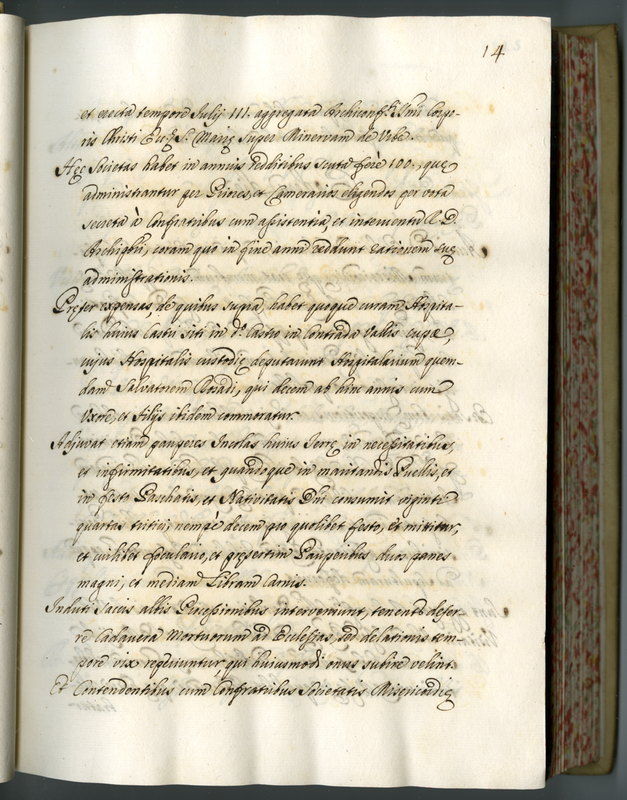 14
et erecta tempore Julij III. aggregata Archiconf. SSmi Corpo-
ris Christi Eccl S. Mariæ super Minervam de Urbe.
Hæc Societas habet in annuis redditibus scuta ferè 100., quæ
administrantur per Priores, et Camerarios eligendos per vota
secreta à Confratribus cum assistentia, et interventu R. D.
Archipbri, coram quo in fine anni reddunt rationem suæ
administrationis.
Præter expensas, de quibus supra, habet quoque curam Hospita-
lis huius Castri siti in do Castro in Contrada Vallis cupæ,
cujus Hospitalis custodiæ deputarunt Hospitalarium quen-
dam Salvatorem Rosadi, qui decem ab hinc annis cum
Uxore, et filijs ibidem commoratur.
Adjuvat etiam pauperes Incolas huius Terræ in necessitatibus,
et infirmitatibus, et quandoque in maritandis Puellis, et
in festo Paschatis, et Nativitatis Dni consumit viginti
quartas tritici, nempè decem pro quolibet festo, et
et cuilibet foculario, et præsertim Pauperibus duos panes
magni, et mediam Libram Carnis.
Induti Saccis albis Processionibus interveniunt, tenentr defer-
re Cadavera Mortuorum ad Ecclesias, sed delationis tem-
pore vix reperiuntur, qui huiusmodi onus subire velint.
Et Contendentibus cum Confratribus Societatis Misericordiæ